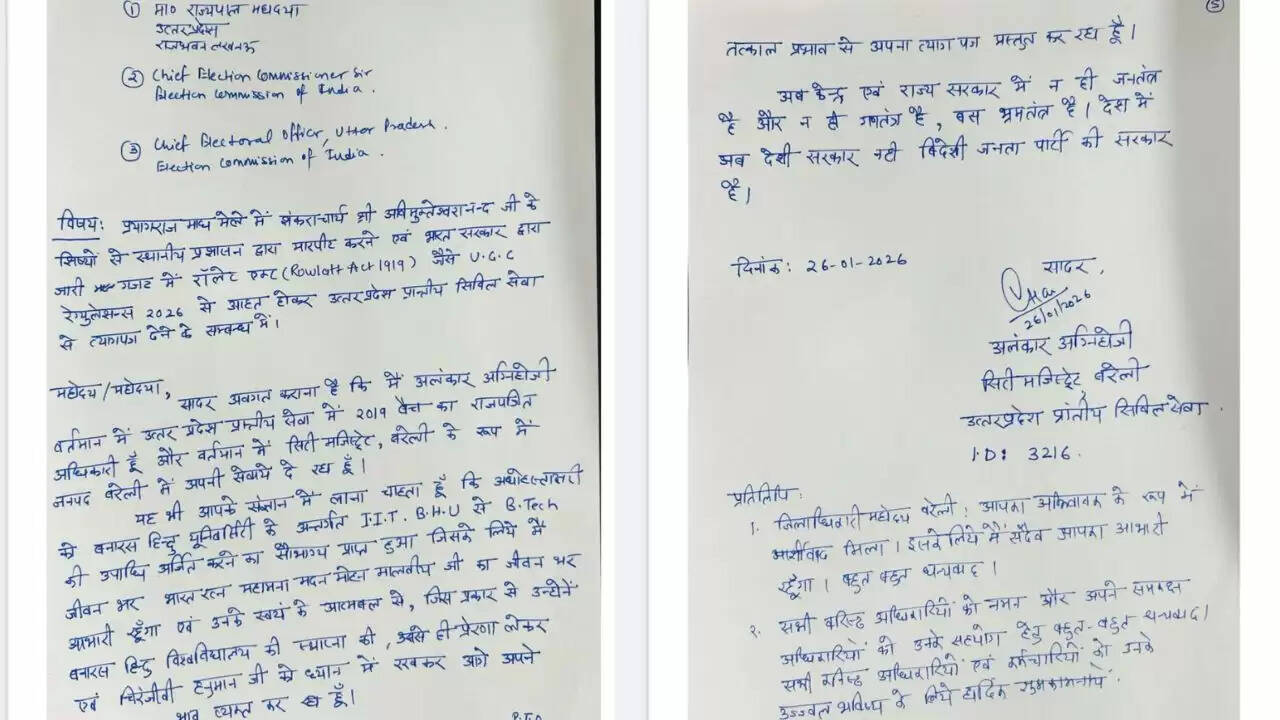 ① मा० राज्यपाल महोदया
उत्तरप्रदेश
राजभवन लखनऊ
② Chief Election Commissioner Sir
Election Commission of India.
③ Chief Electoral Officer, Uttar Pradesh.
Election Commission of India.
विषय: प्रयागराज माघ मेले में शंकराचार्य श्री अविमुक्तेश्वरानन्द जी के
शिष्यों से स्थानीय प्रशासन द्वारा मारपीट करने एवं भारत सरकार द्वारा
जारी गजट में रॉलेट एक्ट (Rowlatt Act 1919) जैसे U.G.C
रेग्युलेसन्स 2026 से आहत होकर उत्तरप्रदेश प्रान्तीय सिविल सेवा
से त्यागपत्र देने के सम्बन्ध में।
महोदय/महोदया,
सादर अवगत कराना है कि मैं अलंकार अग्निहोत्री
वर्तमान में उत्तर प्रदेश प्रान्तीय सेवा में 2019 बैच का राजपत्रित
अधिकारी हूँ और वर्तमान में सिटी मजिस्ट्रेट, बरेली के रूप में
जनपद बरेली में अपनी सेवाये दे रहा हूँ।
यह भी आपके संज्ञान में लाना चाहता हूँ कि अधोहस्ताक्षरी
को बनारस हिन्दू यूनिवर्सिटी के अन्तर्गत I.I.T. B.H.U से B.Tech
की उपाधि अर्जित करने का सौभाग्य प्राप्त हुआ जिसके लिये मैं
जीवन भर भारत रत्न महामना मदन मोहन मालवीय जी का जीवन भर
आभारी रहूँगा एवं उनके स्वयं के आत्मबल से, जिस प्रकार से उन्होनें
बनारस हिन्दू विश्वविद्यालय की स्थापना की, उससे ही प्रेरणा लेकर
एवं चिरंजीवी हनुमान जी को ध्यान में रखकर आगे अपने
भाव व्यक्त कर रहा हूँ।
P.T.O
⑤
तत्काल प्रभाव से अपना त्याग पत्र प्रस्तुत कर रहा हूँ।
अब केन्द्र एवं राज्य सरकार में न ही जनतंत्र
है और न ही गणतंत्र है, बस भ्रमतंत्र है। देश में
अब देशी सरकार नहीं विदेशी जनता पार्टी की सरकार
है।
दिनांक: 26-01-2026
सादर,
26/01/2026
अलंकार अग्निहोत्री
सिटी मजिस्ट्रेट, बरेली
उत्तरप्रदेश प्रांतीय सिविल सेवा.
I.D: 3216.
प्रतिलिपि:
1. जिलाधिकारी महोदय बरेली: आपका अभिभावक के रूप में
आशीर्वाद मिला। इसके लिये मैं सदैव आपका आभारी
रहूँगा। बहुत बहुत धन्यवाद।
२. सभी वरिष्ठ अधिकारियों को नमन और अपने समकक्ष
अधिकारियों को उनके सहयोग हेतु बहुत-बहुत धन्यवाद।
सभी कनिष्ठ अधिकारियों एवं कर्मचारियों को उनके
उज्ज्वल भविष्य के लिये हार्दिक शुभकामनायें.